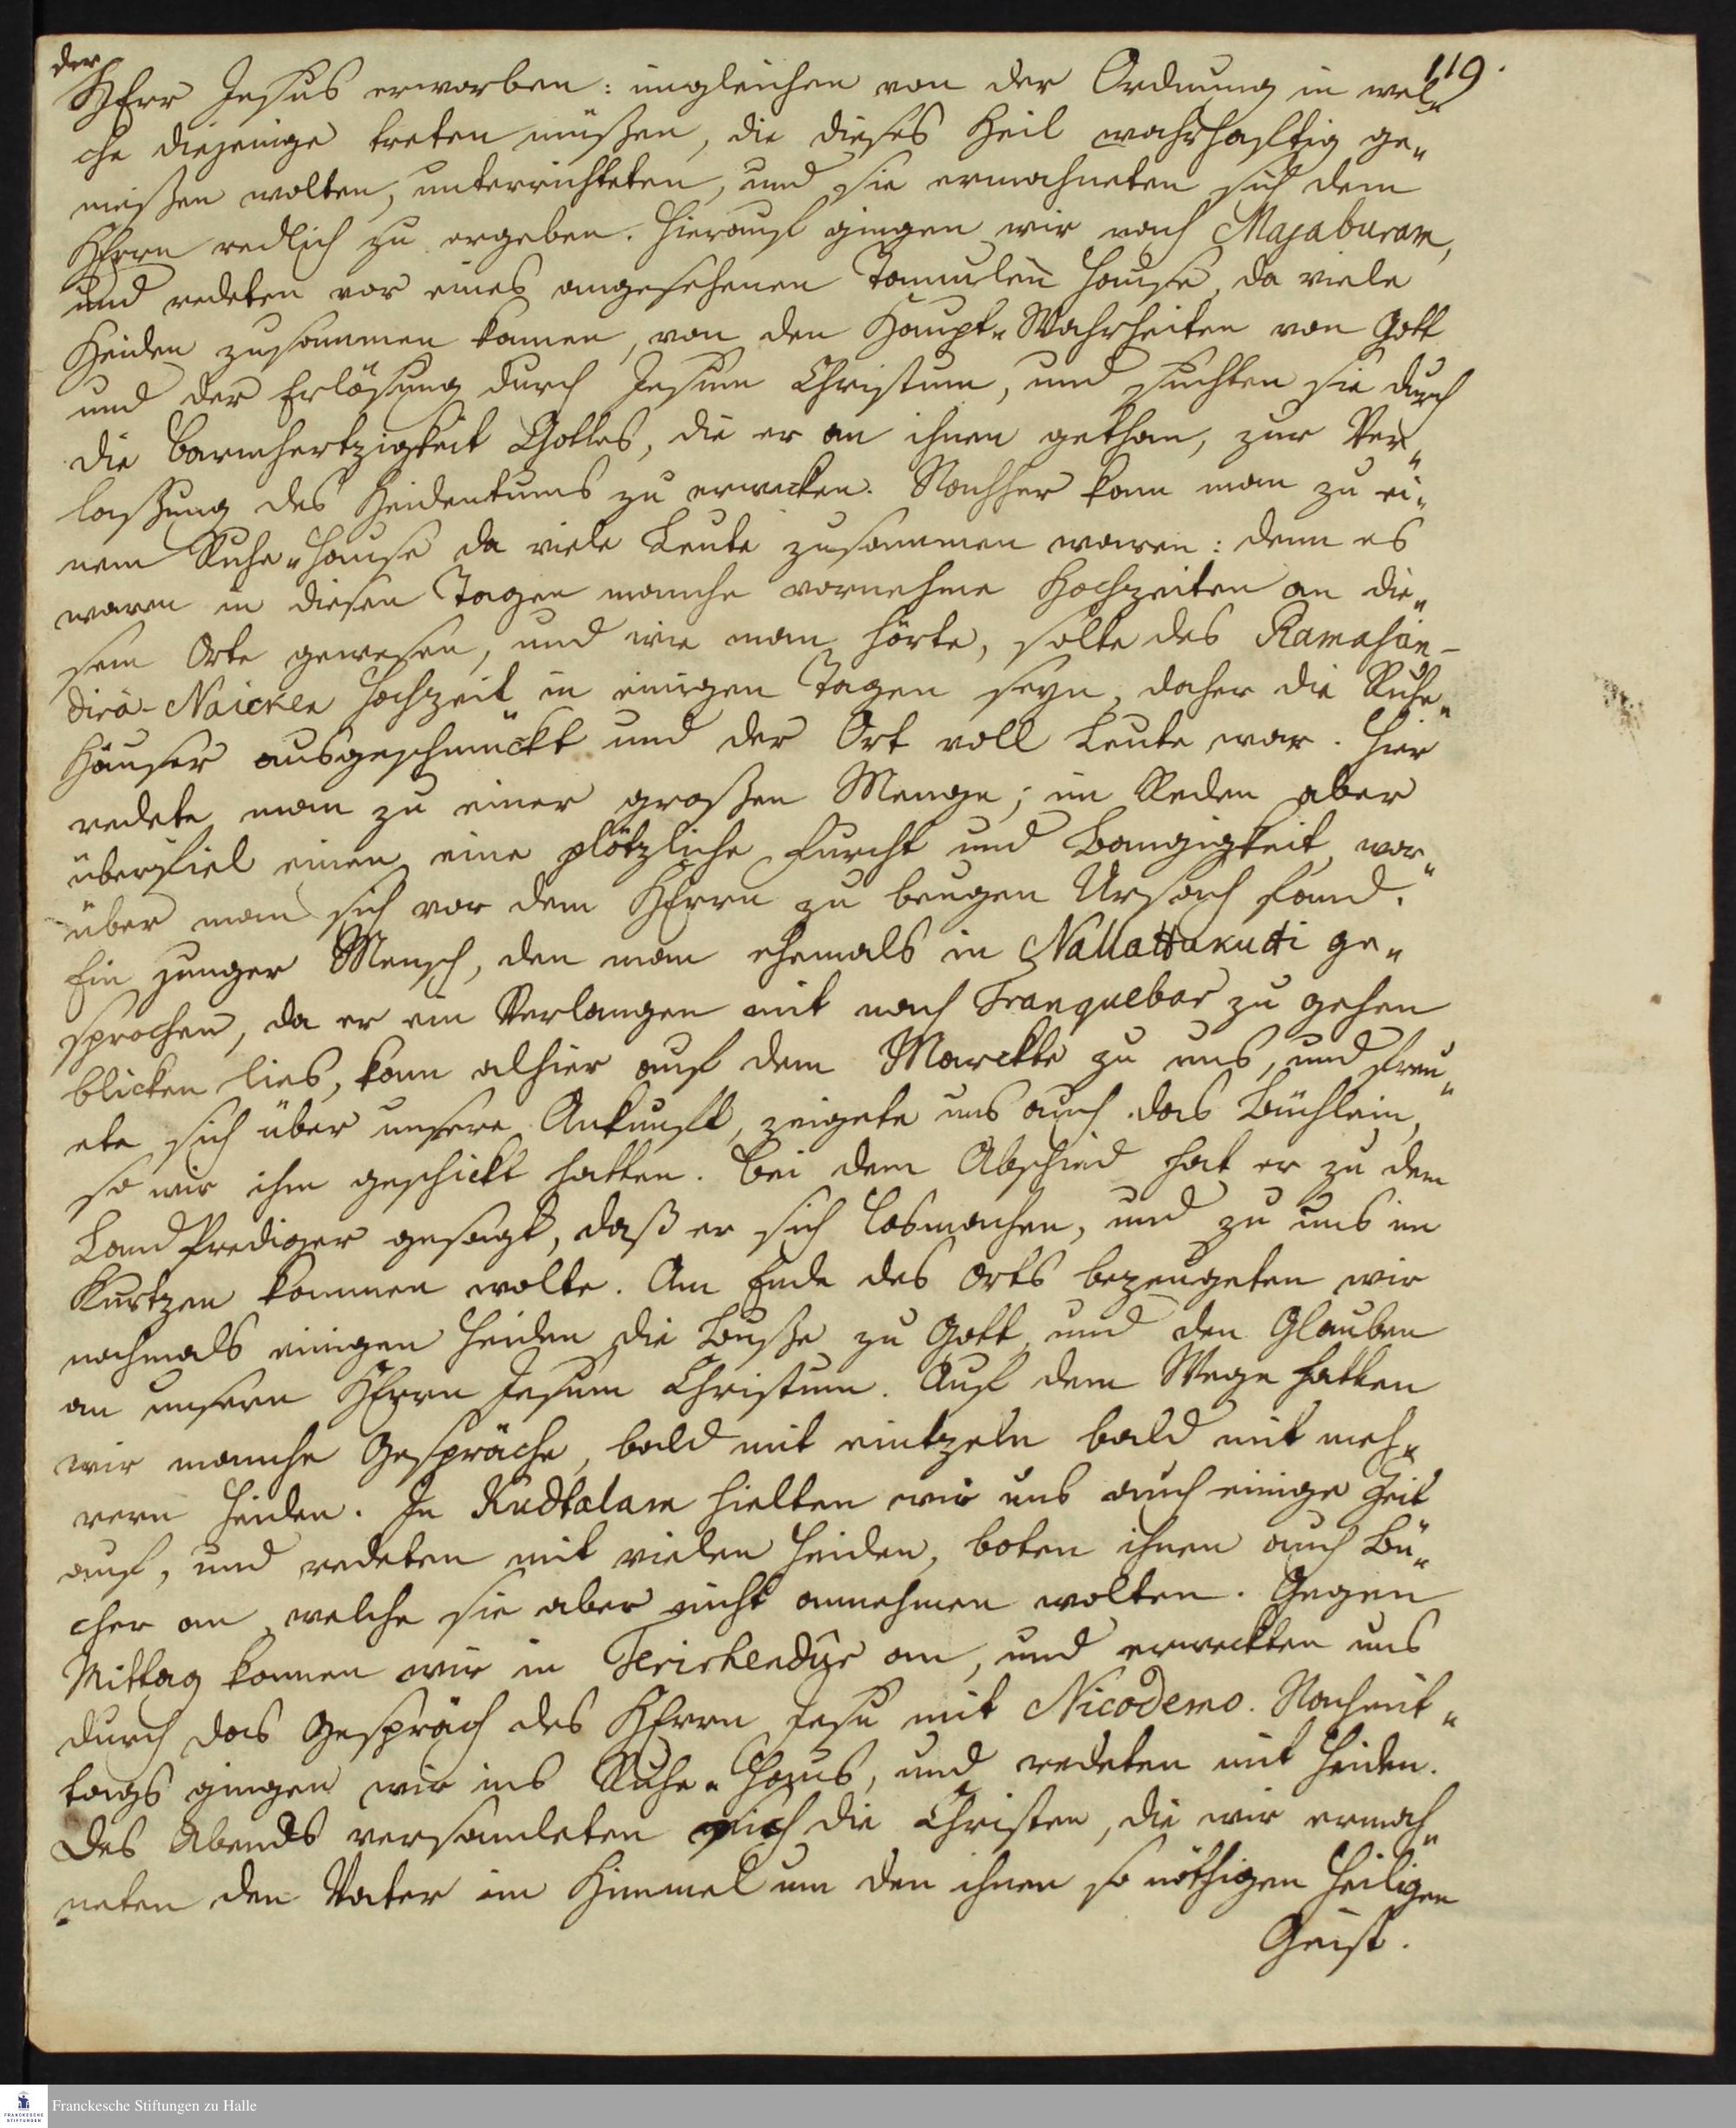 der
119.
HErr Jesus erworben: ingleichen von der Ordnung in wel„
che diejenige treten müßen, die dieses Heil wahrhafftig ge„
nießen wolten, unterrichteten, und sie ermahneten sich dem
HErrn redlich zu ergeben. Hierauf gingen wir nach Majaburam,
und redeten vor eines angesehenen Tamulen Hause, da viele
Heiden zusammen kamen, von den Haupt„Wahrheiten von Gott
und der Erlösung durch Jesum Christum, und suchten sie durch
die Barmhertzigkeit Gottes, die er an ihnen gethan, zur Ver„
laßung des Heidentums zu erwecken. Nachher kam man zu ei„
nem Ruhe„Hause da viele Leute zusammen waren: denn es
waren in diesen Tagen manche vornehme Hochzeiten an die„
sem Orte gewesen, und wie man hörte, solte des Ramasan-
dira-Naicken Hochzeit in einigen Tagen seyn, daher die Ruhe„
Häuser ausgeschmückt und der Ort voll Leute war. Hier
redete man zu einer großen Menge; im Reden aber
überfiel einen eine plötzliche Furcht und Bangigkeit, wor„
über man sich vor dem HErrn zu beugen Ursach fand.
Ein junger Mensch, den man ehemals in Nallattukudi ge„
sprochen, da er ein Verlangen mit nach Tranquebar zu gehen
blicken lies, kam alhier auf dem Marckte zu uns, und freu„
ete sich über unsere Ankunfft, zeigete uns auch das Büchlein,
so wir ihm geschickt hatten. Bei dem Abschied hat er zu dem
Land Prediger gesagt, daß er sich losmachen, und zu uns im
Kurtzen kommen wolte. Am Ende des Orts bezeugeten wir
nochmals einigen Heiden die Buße zu Gott und den Glauben
an unsern HErrn Jesum Christum. Auf dem Wege hatten
wir manche Gespräche, bald mit eintzeln bald mit meh„
rern Heiden. In Kudtalam hielten wir uns auch einige Zeit
auf, und redeten mit vielen Heiden, boten ihnen auch Bü„
cher an, welche sie aber nicht annehmen wolten. Gegen
Mittag kamen wir in Terirhendur an, und erweckten uns
durch das Gespräch des HErrn Jesu mit Nicodemo. Nachmit„
tags gingen wir ins Ruhe„Haus, und redeten mit Heiden.
Des Abends versamleten sich die Christen, die wir ermah„
neten den Vater im Himmel um den ihnen so nöthigen Heiligen
Geist.
Franckesche Stiftungen zu Halle
FRANCKESCHE
STIFTUNGEN